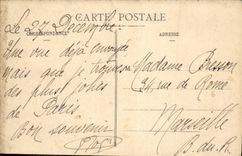 CARTE POSTALE
CORRESPONDANCE
ADRESSE
Le 27 Décembre
Une vue déjà envoyée
mais que je trouve
des plus jolies
de Paris
Bon souvenir
Madame Besson
34 rue de Rome
Marseille
B. du R.